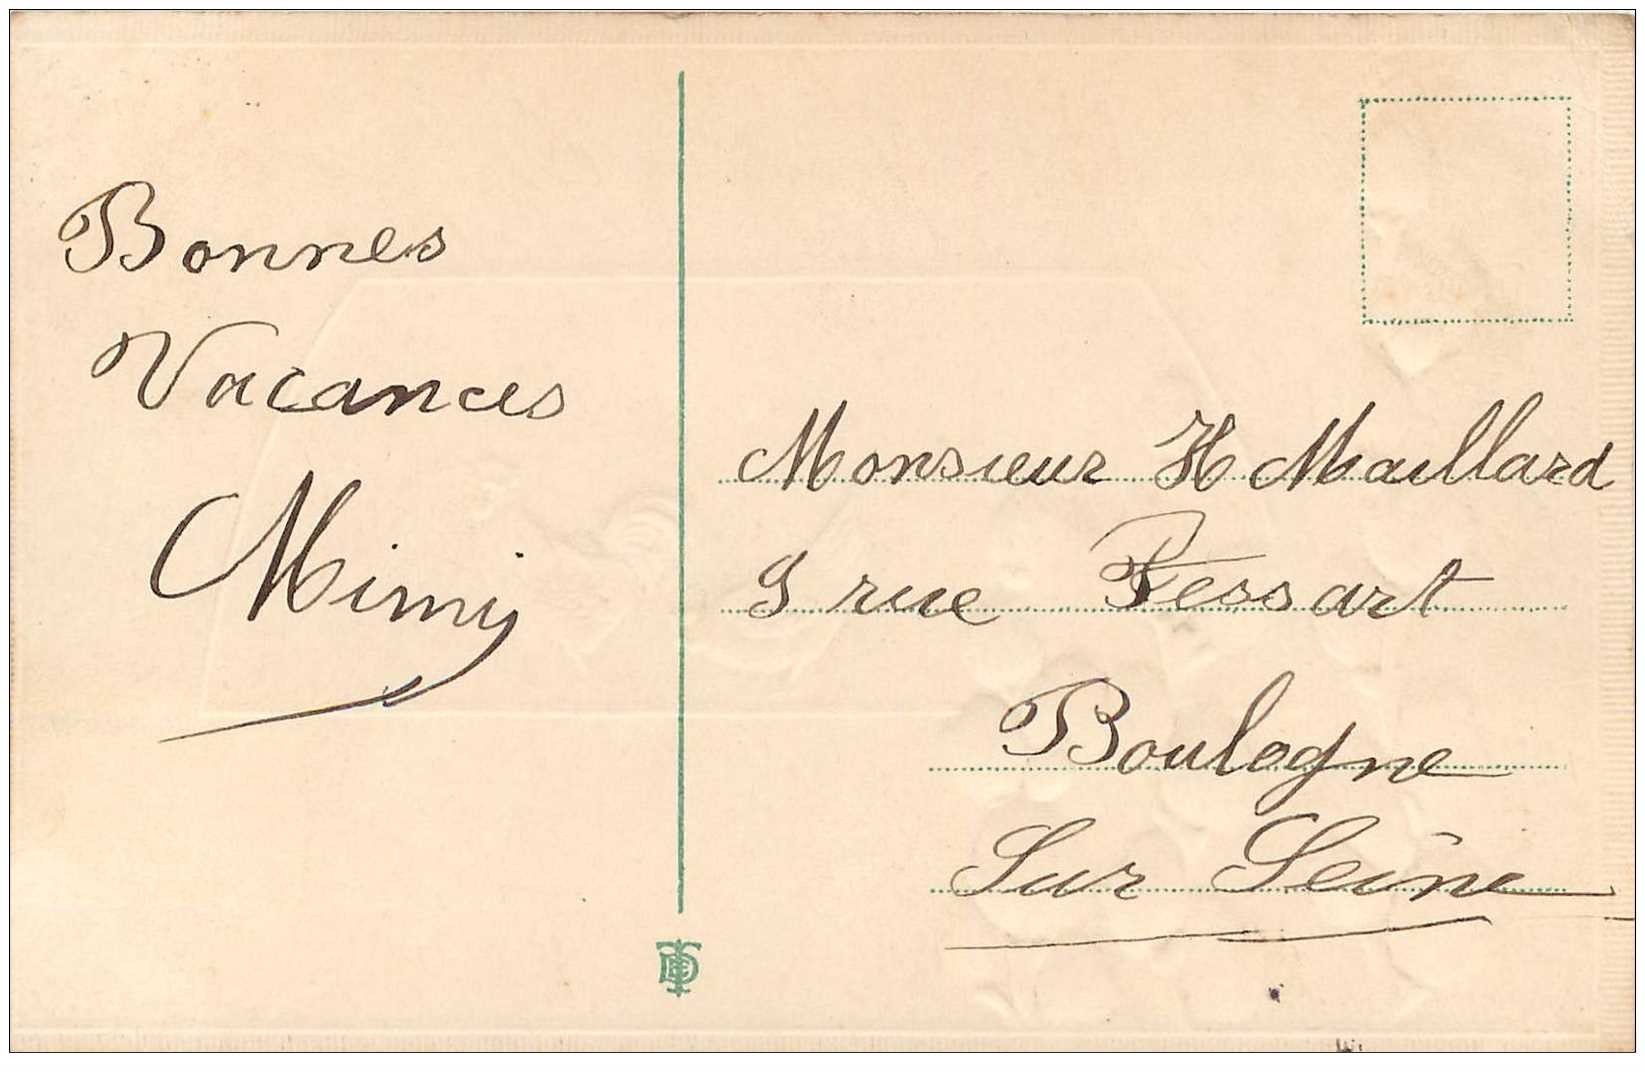 Bonnes
Vacances
Mimi
Monsieur H Maillard
rue Fessart
Boulogne
Sur Seine